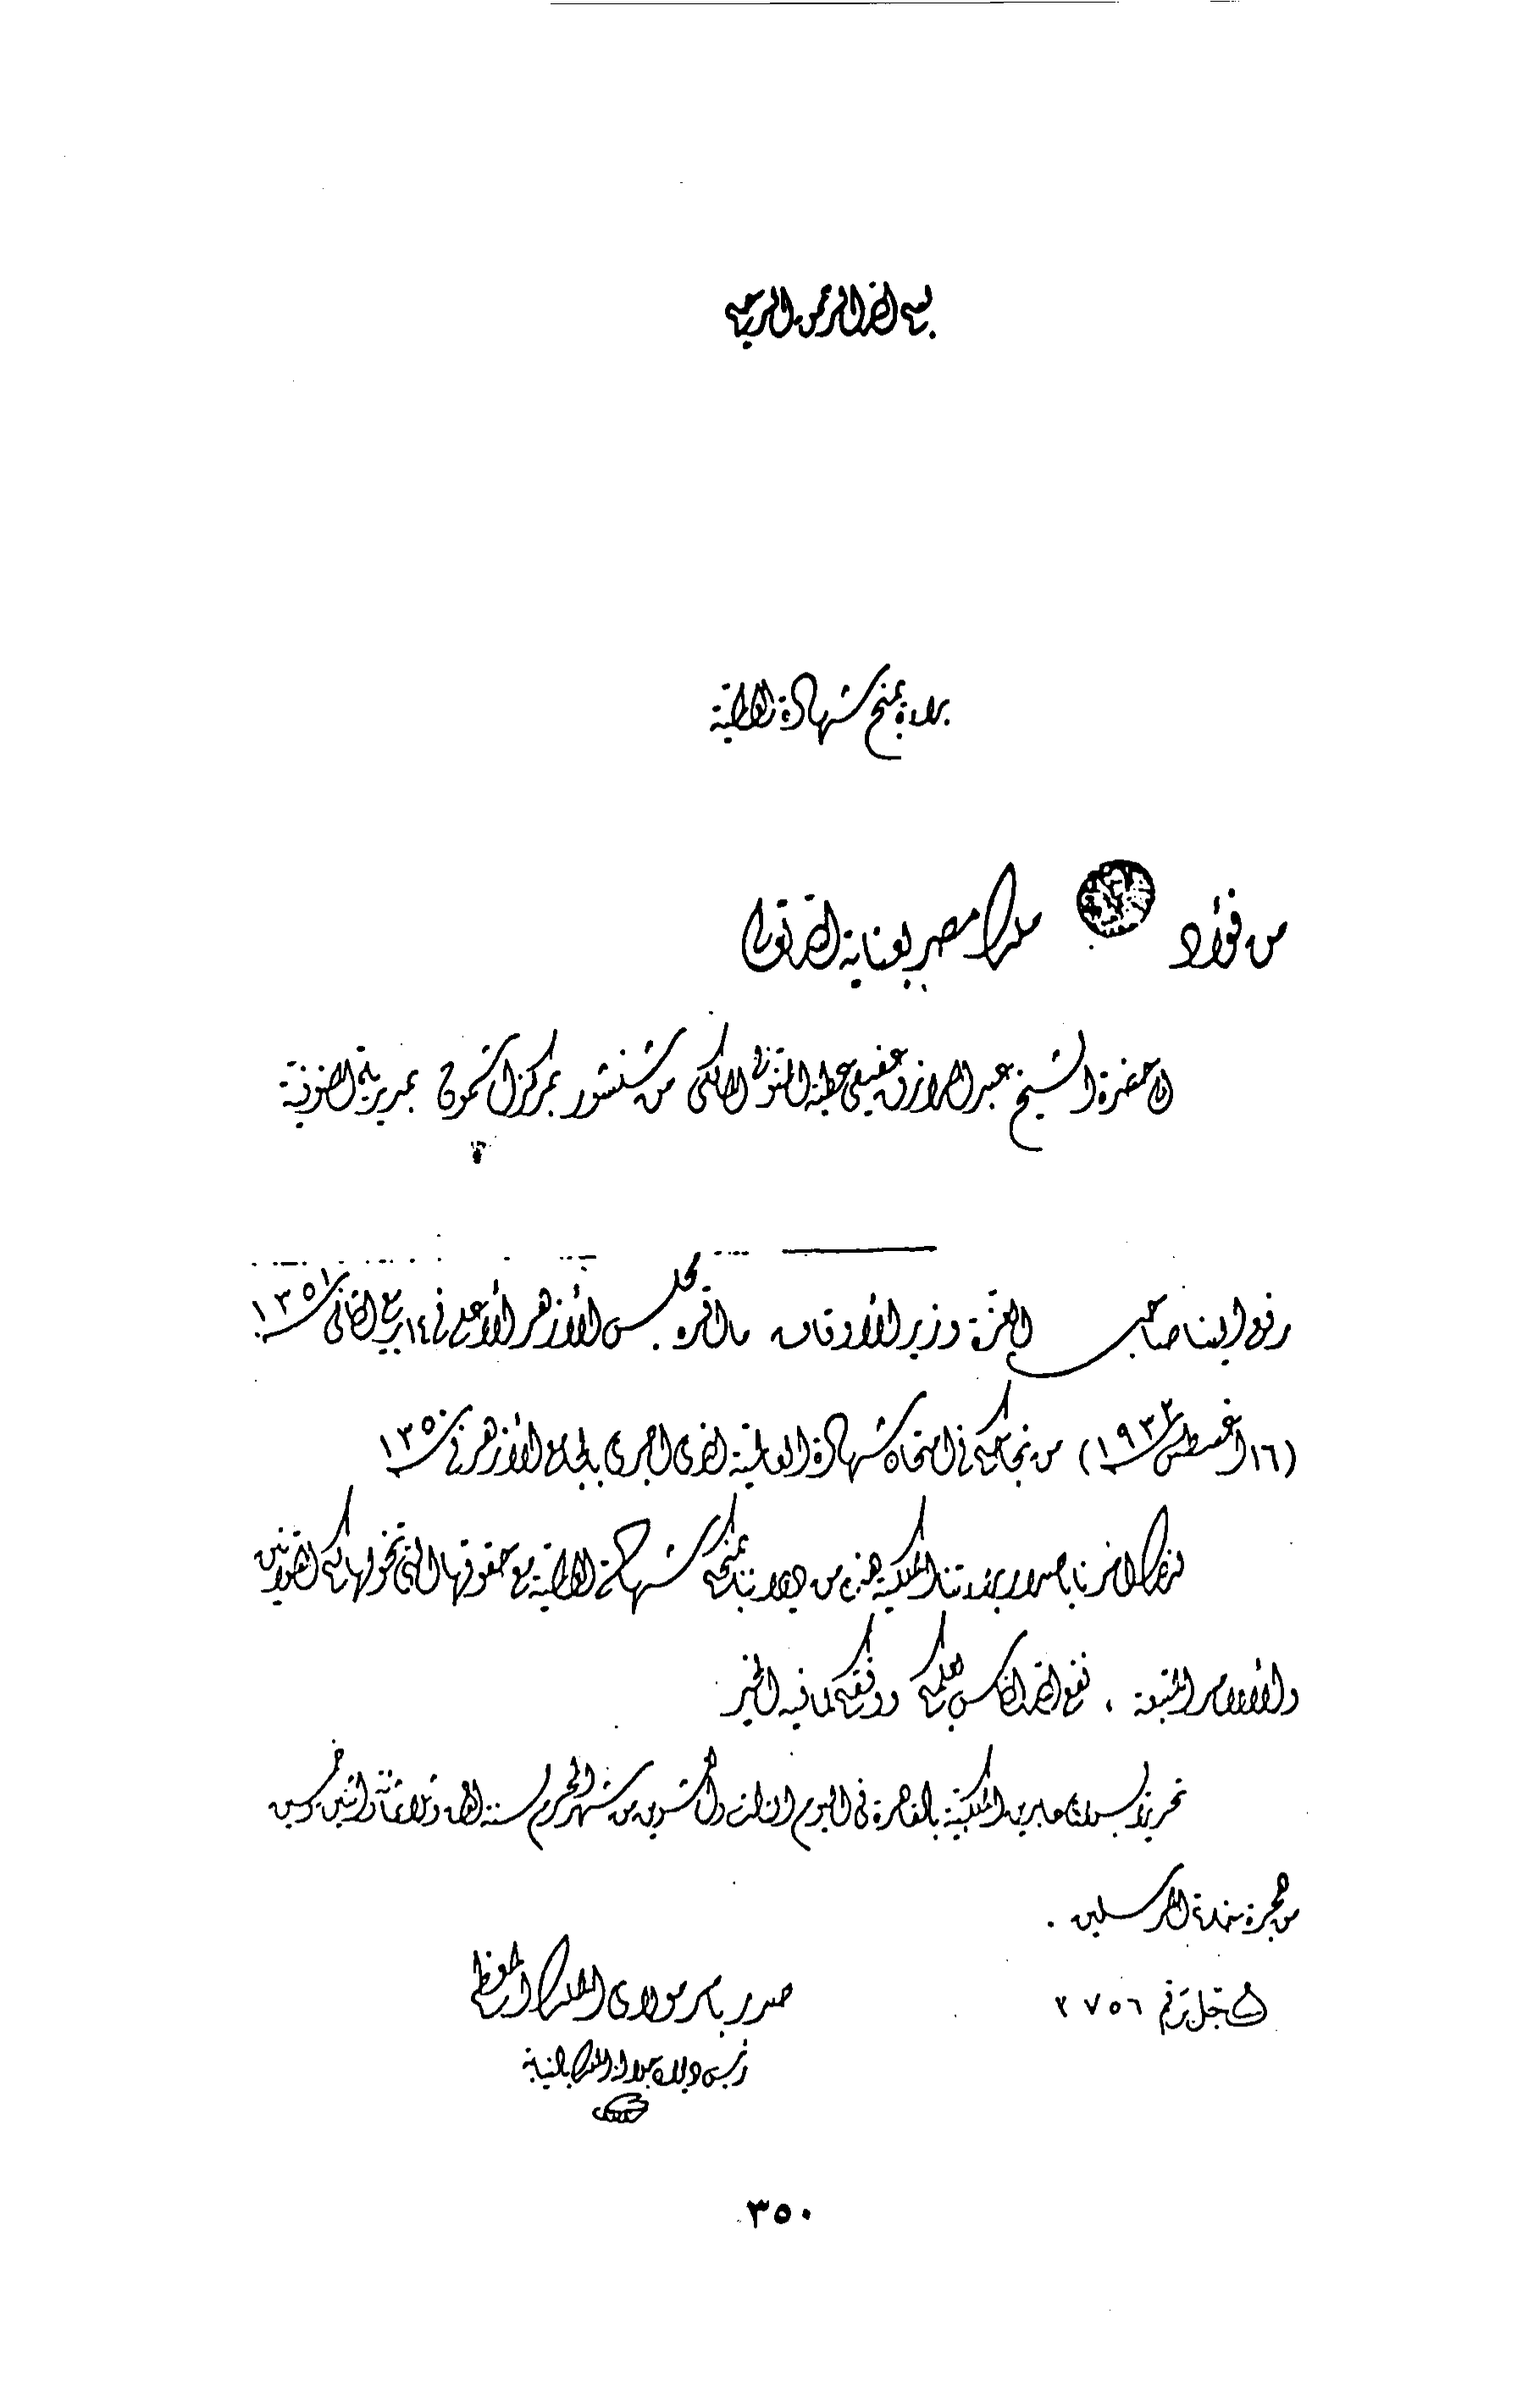 بسم الله الرحمن الرحيم
براءة بمنح شهادة العالمية
من فؤاد ملك مصر بعناية الله تعالى
إلى حضرة الشيخ عبد الرازق عفيفي عطية النوبي المالكي من شنشور بمركز أشمون بمديرية المنوفية
رفع إلينا صاحب العزة وزير الأوقاف ما أقره مجلس الأزهر الأعلى في ١٤ ربيع الثاني سنة ١٣٥١
(١٦ أغسطس سنة ١٩٣٢) من نجاحكم في امتحان شهادة العالمية الذي أجري بالجامع الأزهر في سنة ١٣٥٠
لذلك أمرنا بإصدار براءتنا الملكية هذه من ديواننا بمنحكم شهادة العالمية مع حقوقها التي تخولها لكم القوانين
والأوامر المتبعة . نفع الله الناس بعلمكم ووفقكم لما فيه الخير
تحريرا بسراي عابدين الملكية بالقاهرة في اليوم الثالث والعشرين من شهر المحرم لسنة ألف وثلاثمائة واثنتين وخمسين
من هجرة خاتم المرسلين .
صدر بأمر مولاي الملك المعظم
سجل برقم ٢٧٥٦
رئيس ديوان جلالة الملك بالنيابة
٣٥٠